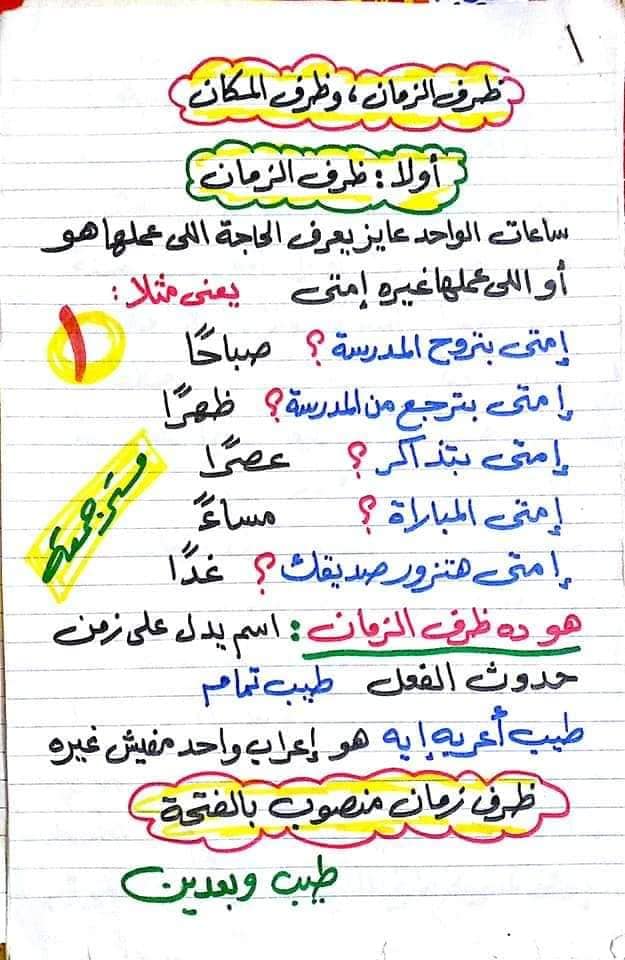 ١
ظرف الزمان، وظرف المكان
أولا: ظرف الزمان
ساعات الواحد عايز يعرف الحاجة اللى عملها هو
أو اللى عملها غيره إمتى يعنى مثلا:
١
إمتى بتروح المدرسة؟ صباحًا
إمتى بترجع من المدرسة؟ ظهرًا
إمتى بتذاكر؟ عصرًا
إمتى المباراة؟ مساءً
إمتى هتزور صديقك؟ غدًا
هو ده ظرف الزمان: اسم يدل على زمن
حدوث الفعل طيب تمام
طيب أعربه إيه هو إعراب واحد مفيش غيره
ظرف زمان منصوب بالفتحة
طيب وبعدين